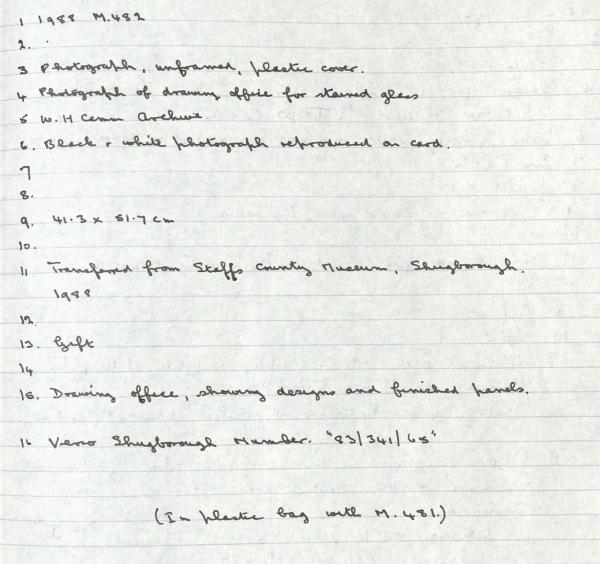 1 1988 M.482
2. .
3 Photograph, unframed, plastic cover.
4 Photograph of drawing office for stained glass
5 W. H Camm Archive.
6. Black & white photograph reproduced on card.
7
8.
9. 41.3 x 51.7 cm
10.
11 Transferred from Staffs County Museum, Shugborough.
1988
12.
13. Gift
14
15. Drawing office, showing designs and finished panels.
16 Verso Shugborough Number. "83/341/65"
(In plastic bag with M.481.)